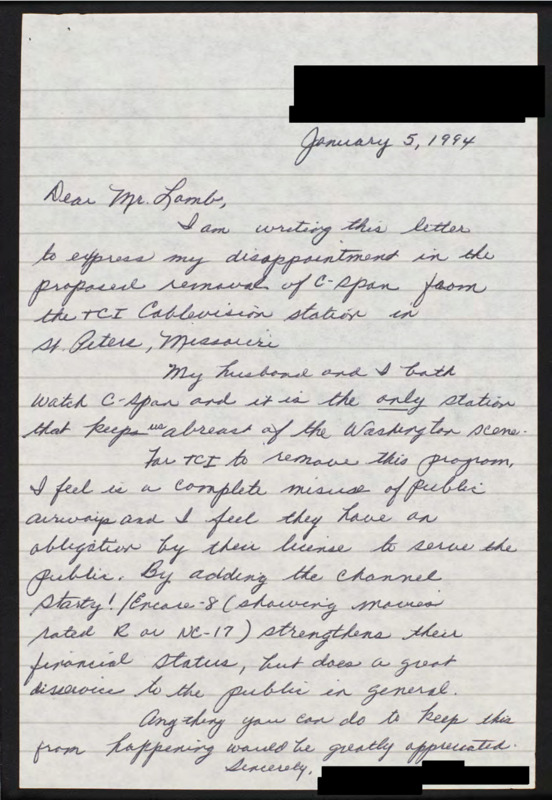 January 5, 1994
Dear Mr. Lamb,
I am writing this letter
to express my disappointment in the
proposed removal of C-Span from
the TCI Cablevision station in
St. Peters, Missouri
My husband and I both
watch C-Span and it is the only station
that keeps us abreast of the Washington scene.
For TCI to remove this program,
I feel is a complete misuse of public
airways and I feel they have an
obligation by their license to serve the
public. By adding the channel
Starty! / Encore-8 (showing movies
rated R or NC-17) strengthens their
financial status, but does a great
disservice to the public in general.
Anything you can do to keep this
from happening would be greatly appreciated.
Sincerely,